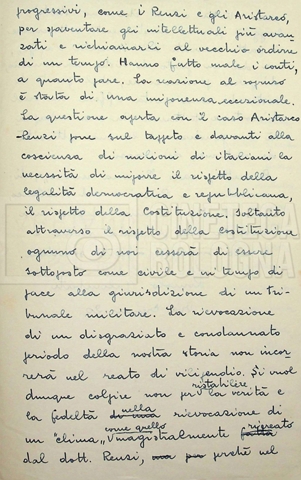 progressivi, come i Renzi e gli Aristarco,
per spaventare gli intellettuali più avan-
zati e richiamarli al vecchio ordine
di un tempo. Hanno fatto male i conti,
a quanto pare. La reazione al sopruso
è stata di una imponenza eccezionale.
La questione aperta con il caso Aristarco
-Renzi pone sul tappeto e davanti alla
coscienza di milioni di italiani la
necessità di imporre il rispetto della
legalità democratica e repubblicana,
il rispetto della Costituzione. Soltanto
attraverso il rispetto della Costituzione
ognuno di noi cesserà di essere
sottoposto come civile e in tempo di
pace alla giurisdizione di un tri-
bunale militare. La rievocazione
di un disgraziato e condannato
periodo della nostra storia non incor
rerà nel reato di vilipendio. Si vuol
dunque colpire non per ristabilire la verità e
la fedeltà di una nella rievocazione di
un "clima" come quello magistralmente ricreato
dal dott. Renzi, perché nel